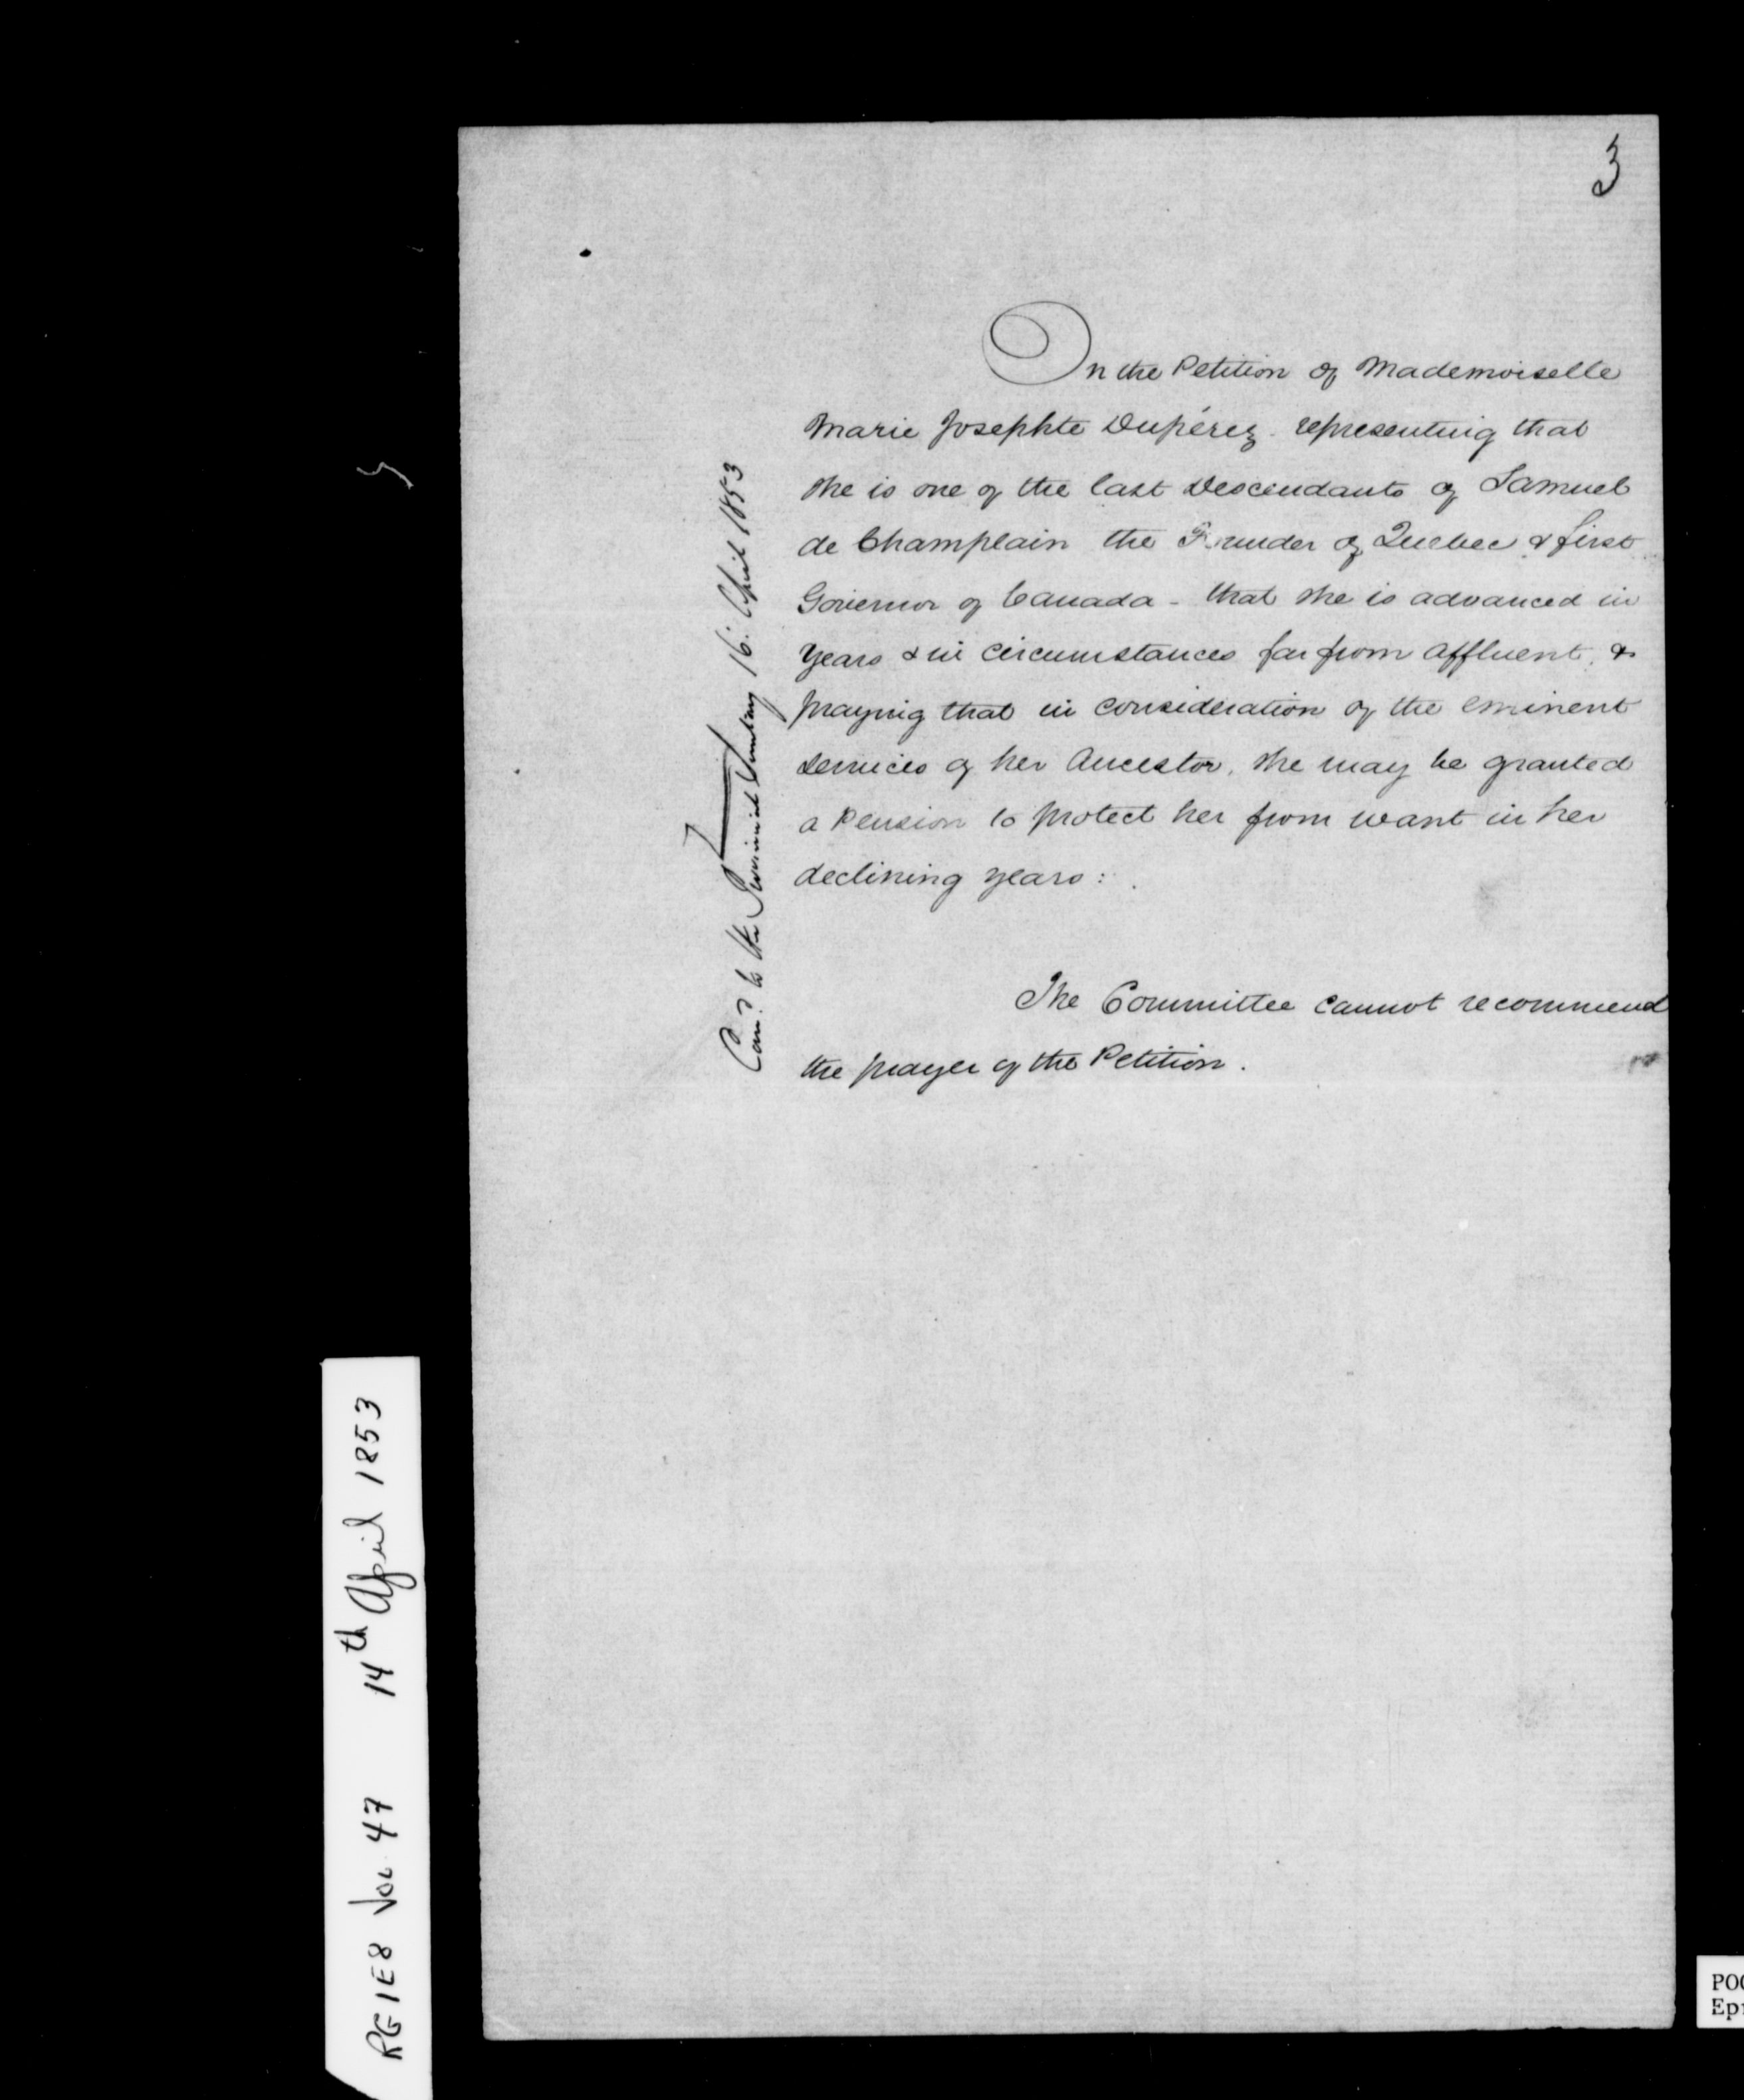 3
On the Petition of Mademoiselle
Marie Josephte Dupérez - representing that
she is one of the last Descendants of Samuel
de Champlain the Founder of Quebec & first
Governor of Canada - that she is advanced in
Years & in circumstances far from affluent, &
praying that in consideration of the eminent
services of her Ancestor, she may be granted
a Pension to protect her from want in her
declining years :
The Committee cannot recommend
the prayer of the Petition.
to the Provincial Secretary 16: April 1853
RG 1 E8 Vol. 47 14th April 1853